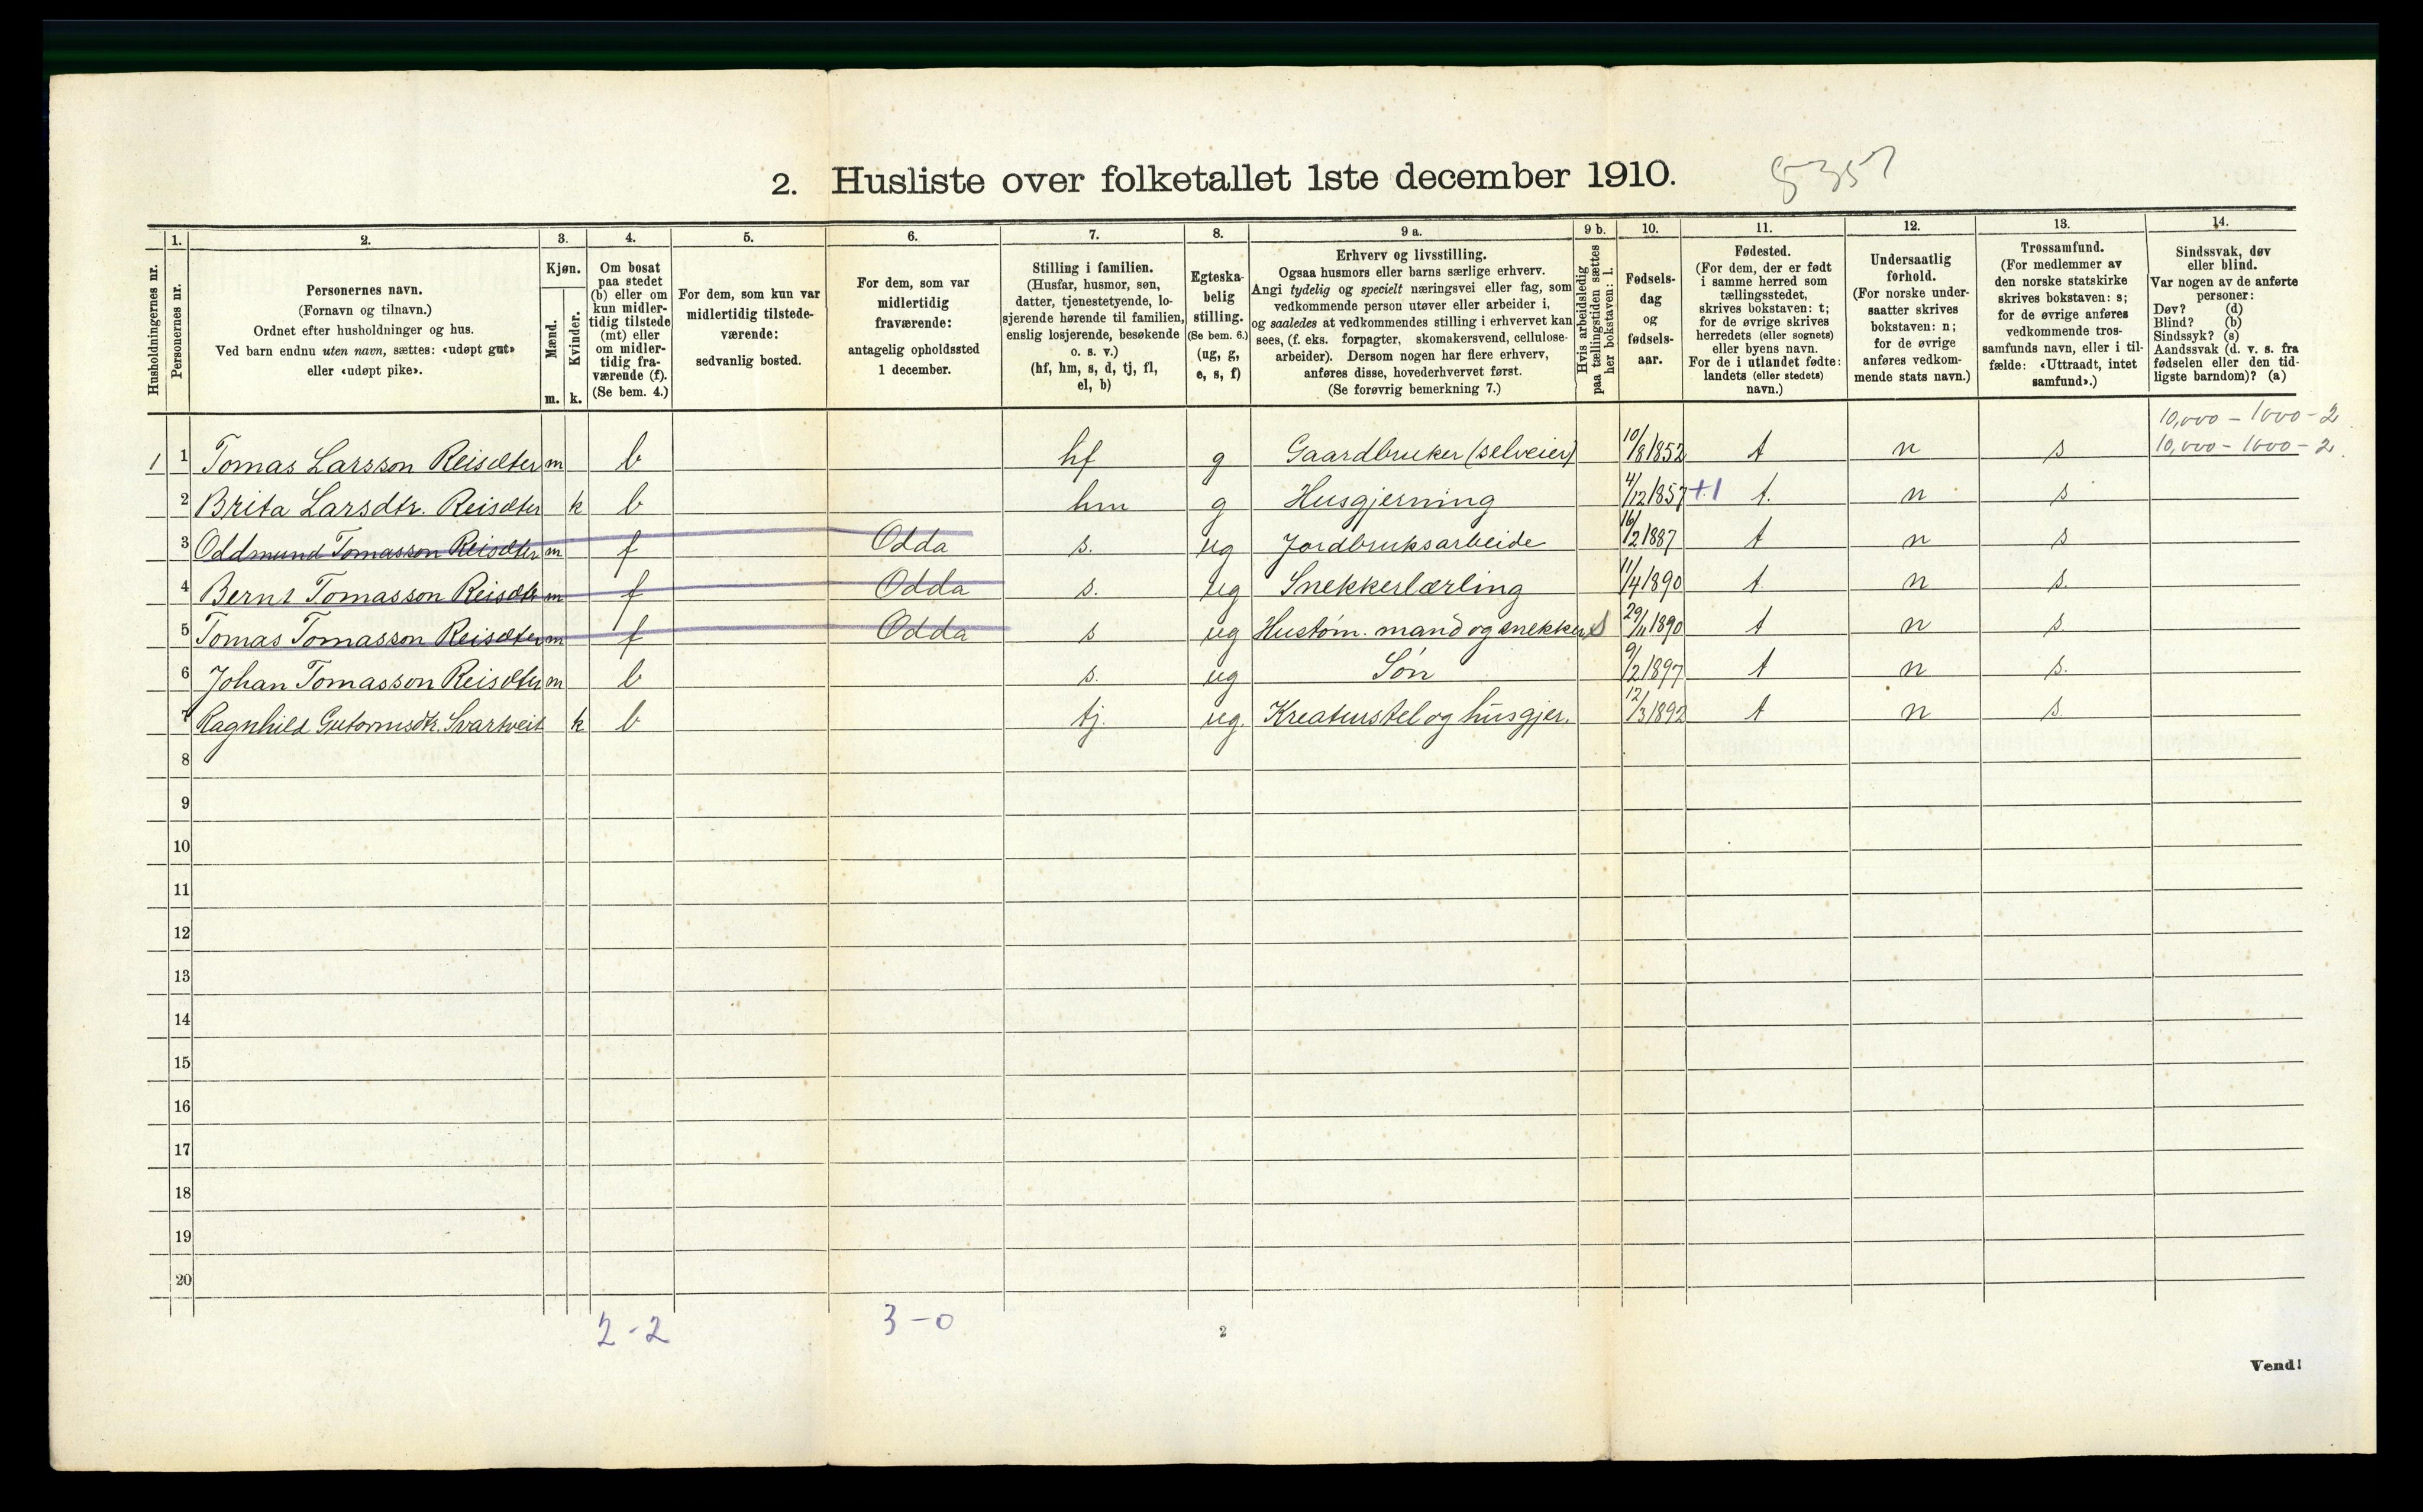 2. Husliste over folketallet 1ste december 1910. 5357
Husholdningernes nr.
1. Personernes nr.
2. Personernes navn. (Fornavn og tilnavn.) Ordnet efter husholdninger og hus. Ved barn endnu uten navn, sættes: «udøpt gut» eller «udøpt pike».
3. Kjøn. Mænd. Kvinder. m. k.
4. Om bosat paa stedet (b) eller om kun midlertidig tilstede (mt) eller om midlertidig fraværende (f). (Se bem. 4.)
5. For dem, som kun var midlertidig tilstedeværende: sedvanlig bosted.
6. For dem, som var midlertidig fraværende: antagelig opholdssted 1 december.
7. Stilling i familien. (Husfar, husmor, søn, datter, tjenestetyende, losjerende hørende til familien, enslig losjerende, besøkende o. s. v.) (hf, hm, s, d, tj, fl, el, b)
8. Egteskabelig stilling. (Se bem. 6.) (ug, g, e, s, f)
9 a. Erhverv og livsstilling. Ogsaa husmors eller barns særlige erhverv. Angi tydelig og specielt næringsvei eller fag, som vedkommende person utøver eller arbeider i, og saaledes at vedkommendes stilling i erhvervet kan sees, (f. eks. forpagter, skomakersvend, cellulosearbeider). Dersom nogen har flere erhverv, anføres disse, hovederhvervet først. (Se forøvrig bemerkning 7.)
9 b. Hvis arbeidsledig paa tællingstiden sættes her bokstaven: l.
10. Fødselsdag og fødselsaar.
11. Fødested. (For dem, der er født i samme herred som tællingsstedet, skrives bokstaven: t; for de øvrige skrives herredets (eller sognets) eller byens navn. For de i utlandet fødte: landets (eller stedets) navn.)
12. Undersaatlig forhold. (For norske undersaatter skrives bokstaven: n; for de øvrige anføres vedkommende stats navn.)
13. Trossamfund. (For medlemmer av den norske statskirke skrives bokstaven: s; for de øvrige anføres vedkommende trossamfunds navn, eller i tilfælde: «Uttraadt, intet samfund».)
14. Sindssvak, døv eller blind. Var nogen av de anførte personer: Døv? (d) Blind? (b) Sindssyk? (s) Aandssvak (d. v. s. fra fødselen eller den tidligste barndom)? (a)
10,000 - 1000 - 2
1 1 Tomas Larsson Reisæter m b hf g Gaardbruker (selveier) 10/8 1852 t n s 10,000 - 1000 - 2
2 Brita Larsdtr. Reisæter k b hm g Husgjerning 4/12 1857 +1 t. n s
3 Oddmund Tomasson Reisæter m f Odda s. ug Jordbruksarbeide 16/2 1887 t n s
4 Bernt Tomasson Reisæter m f Odda s. ug Snekkerlærling 11/4 1890 t n s.
5 Tomas Tomasson Reisæter m f Odda s ug Hustøm. mand og snekker s 29/11 1890 t n s.
6 Johan Tomasson Reisæter m b s. ug Søn 9/2 1897 t n s.
7 Ragnhild Gutormsdtr. Svartveit k b tj. ug. Kreaturstel og husgjer. 12/3 1892 t n s
8
9
10
11
12
13
14
15
16
17
18
19
20
2-2 3-0
2
Vend!